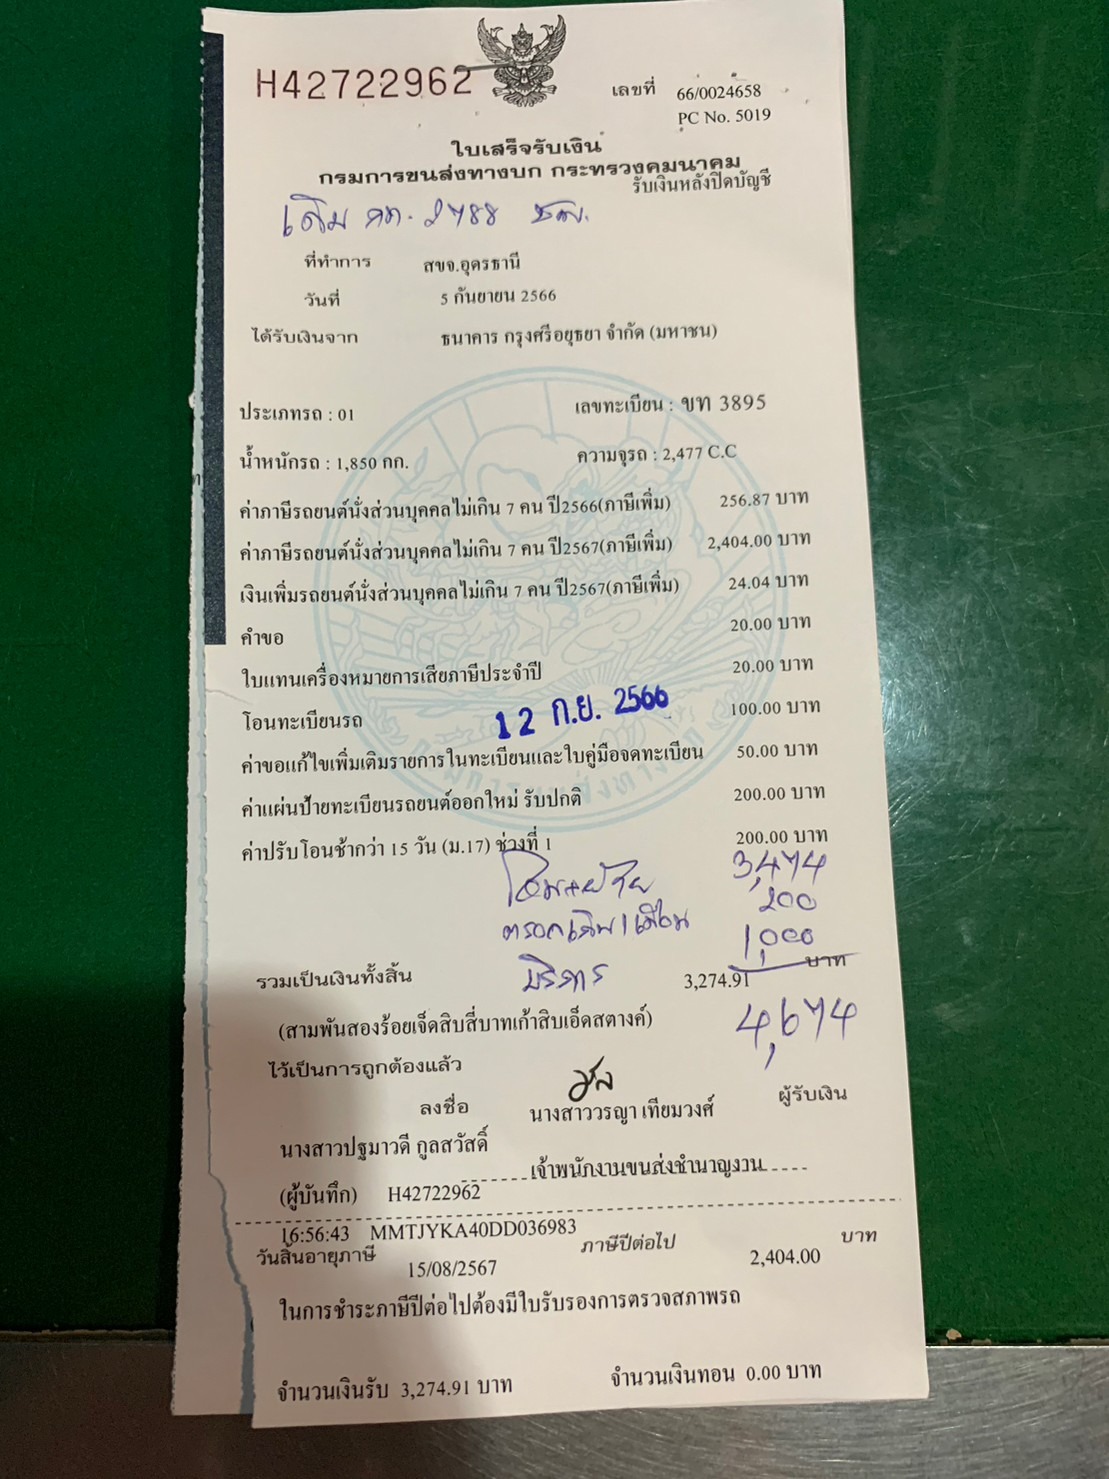 H42722962
เลขที่ 66/0024658
PC No. 5019
ใบเสร็จรับเงิน
กรมการขนส่งทางบก กระทรวงคมนาคม
รับเงินหลังปิดบัญชี
เดิม
ที่ทำการ สขจ.อุดรธานี
วันที่ 5 กันยายน 2566
ได้รับเงินจาก ธนาคาร กรุงศรีอยุธยา จำกัด (มหาชน)
ประเภทรถ : 01 เลขทะเบียน : ขท 3895
น้ำหนักรถ : 1,850 กก. ความจุรถ : 2,477 C.C
ค่าภาษีรถยนต์นั่งส่วนบุคคลไม่เกิน 7 คน ปี2566(ภาษีเพิ่ม) 256.87 บาท
ค่าภาษีรถยนต์นั่งส่วนบุคคลไม่เกิน 7 คน ปี2567(ภาษีเพิ่ม) 2,404.00 บาท
เงินเพิ่มรถยนต์นั่งส่วนบุคคลไม่เกิน 7 คน ปี2567(ภาษีเพิ่ม) 24.04 บาท
คำขอ 20.00 บาท
ใบแทนเครื่องหมายการเสียภาษีประจำปี 20.00 บาท
โอนทะเบียนรถ 100.00 บาท
12 ก.ย. 2566
ค่าขอแก้ไขเพิ่มเติมรายการในทะเบียนและใบคู่มือจดทะเบียน 50.00 บาท
ค่าแผ่นป้ายทะเบียนรถยนต์ออกใหม่ รับปกติ 200.00 บาท
ค่าปรับโอนช้ากว่า 15 วัน (ม.17) ช่วงที่ 1 200.00 บาท
3,474
200
1,000
บริการ
รวมเป็นเงินทั้งสิ้น 3,274.91 บาท
(สามพันสองร้อยเจ็ดสิบสี่บาทเก้าสิบเอ็ดสตางค์)
4,674
ไว้เป็นการถูกต้องแล้ว
ลงชื่อ ผู้รับเงิน
นางสาววรญา เทียมวงศ์
นางสาวปฐมาวดี กูลสวัสดิ์
เจ้าพนักงานขนส่งชำนาญงาน
(ผู้บันทึก) H42722962
16:56:43 MMTJYKA40DD036983
วันสิ้นอายุภาษี 15/08/2567 ภาษีปีต่อไป 2,404.00 บาท
ในการชำระภาษีปีต่อไปต้องมีใบรับรองการตรวจสภาพรถ
จำนวนเงินรับ 3,274.91 บาท จำนวนเงินทอน 0.00 บาท